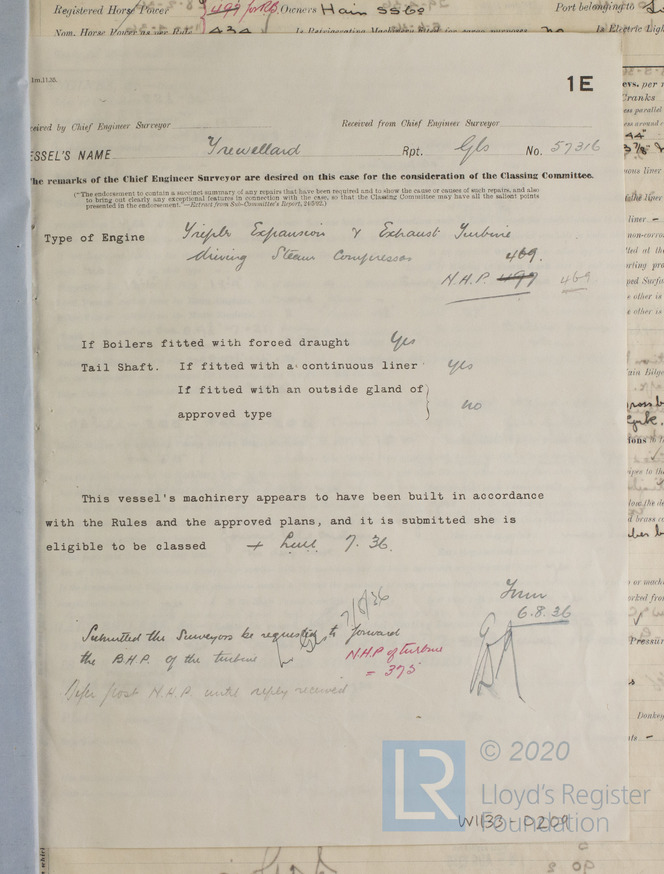 Registered Horse Power 499 for RB. Owners Hain SS Co Port belonging to
Nom. Horse Power as per Rule 434 Is Refrigerating Machinery fitted for cargo purposes no Is Electric Ligh
1m.11.35.
1E
ceived by Chief Engineer Surveyor Received from Chief Engineer Surveyor
ESSEL'S NAME Trewellard Rpt. Gls No. 57316
The remarks of the Chief Engineer Surveyor are desired on this case for the consideration of the Classing Committee.
("The endorsement to contain a succinct summary of any repairs that have been required and to show the cause or causes of such repairs, and also
to bring out clearly any exceptional features in connection with the case, so that the Classing Committee may have all the salient points
presented in the endorsement."—Extract from Sub-Committee's Report, 24/5/92.)
Type of Engine Triple Expansion & Exhaust Turbine
driving Steam Compressor 469.
N.H.P. 499 469
If Boilers fitted with forced draught Yes
Tail Shaft. If fitted with a continuous liner yes
If fitted with an outside gland of
approved type no
This vessel's machinery appears to have been built in accordance
with the Rules and the approved plans, and it is submitted she is
eligible to be classed + LMC 7.36.
7/8/36
6.8.36
Submitted the Surveyors be requested to forward
the B.H.P. of the turbine
N.H.P of turbine
= 375
Defer post N.H.P. until reply received
LR
© 2020
Lloyd's Register
Foundation
W1133-0209